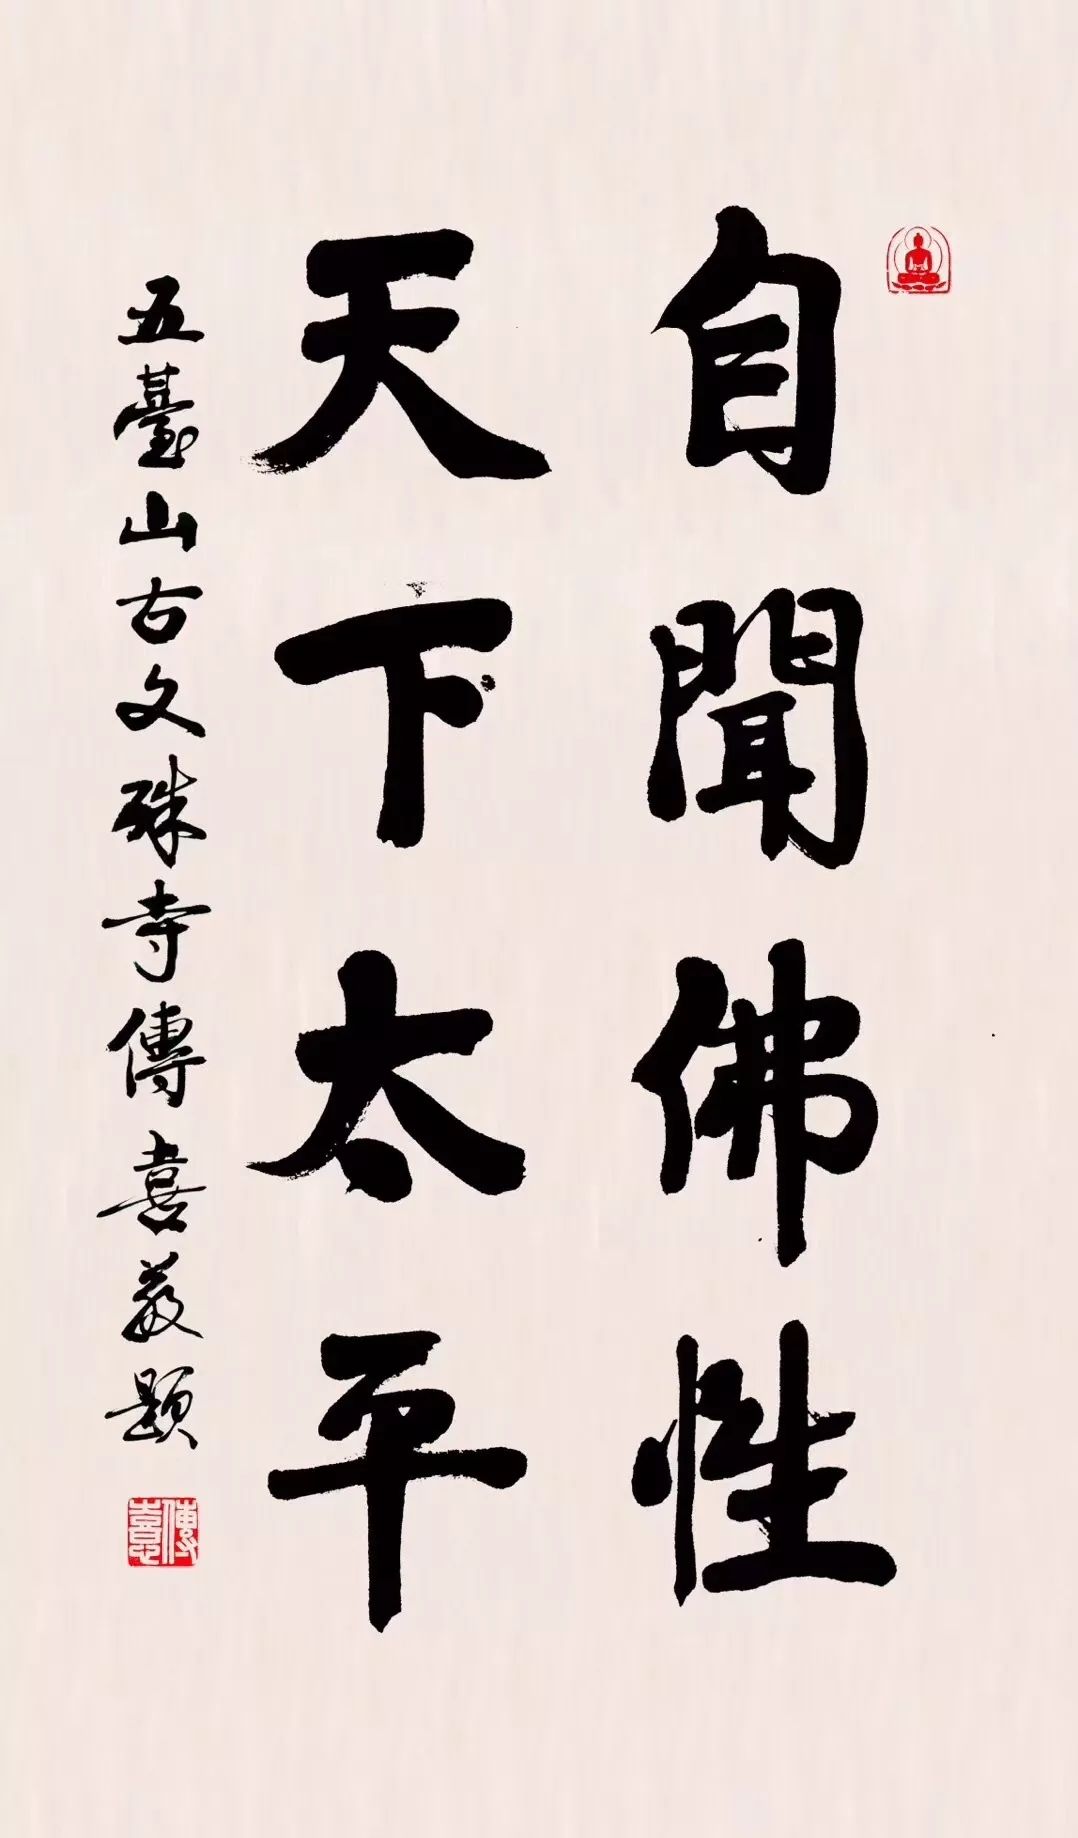 自聞佛性
天下太平
五臺山古文殊寺傳喜敬題
傳憙